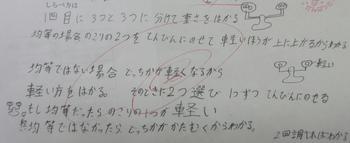 しらべ方は
1回目に 3つと3つに 分けて 重さをはかる
均等の場合のこりの2つを てんびんにのせて 軽いほうが 上に上がるからわかる
均等ではない場合 どっちかが軽くなるから
軽い
軽い方をはかる。 そのときに2つ選び 1つずつ てんびんにのせる
もし均等だったら のこりの1つが 軽い
均等ではなかったら どっちかがかたむくからわかる。
2回調べればわかる